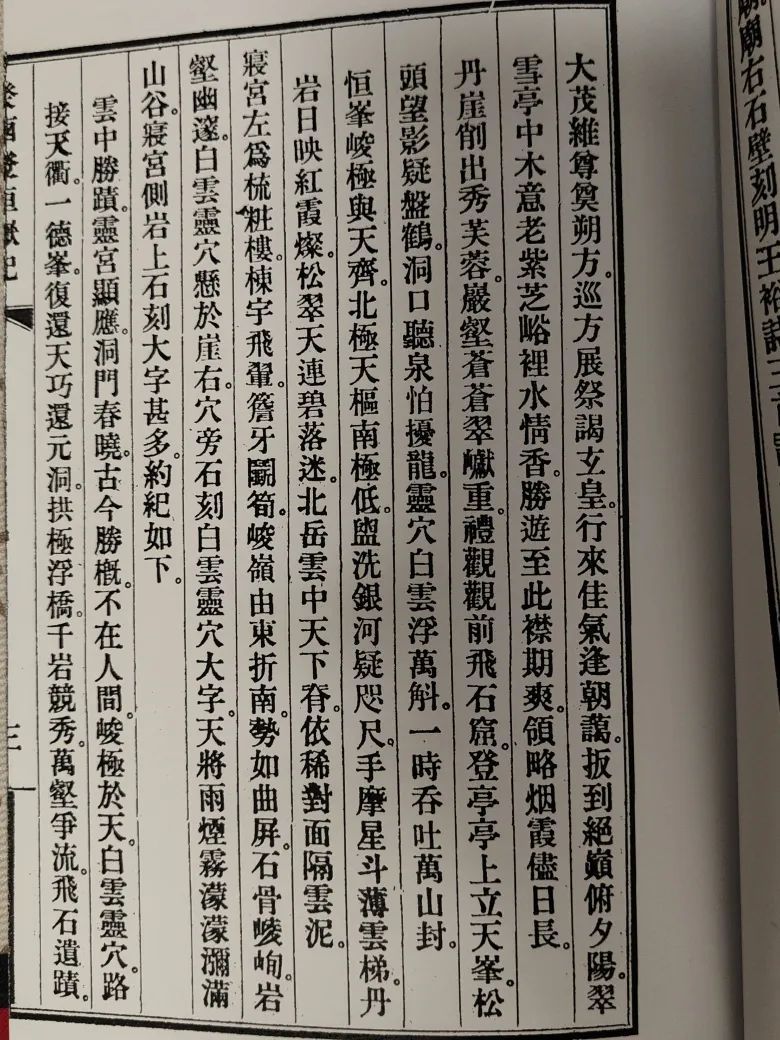 嶽廟右石壁刻明王裕詩三首
大茂維尊奠朔方。巡方展祭謁玄皇。行來佳氣逢朝靄。扳到絕巔俯夕陽。翠
雪亭中木意老。紫芝峪裡水情香。勝遊至此襟期爽。領略烟霞儘日長。
丹崖削出秀芙蓉。巖壑蒼蒼翠巘重。禮觀觀前飛石窟。登亭亭上立天峯。松
頭望影疑盤鶴。洞口聽泉怕擾龍。靈穴白雲浮萬斛。一時吞吐萬山封。
恒峯峻極與天齊。北極天樞南極低。盥洗銀河疑咫尺。手摩星斗薄雲梯。丹
岩日映紅霞燦。松翠天連碧落迷。北岳雲中天下脊。依稀對面隔雲泥。
寢宮左爲梳粧樓。棟宇飛翬。簷牙鬭筍。峻嶺由東折南。勢如曲屏。石骨崚峋。岩
壑幽邃。白雲靈穴懸於崖右。穴旁石刻白雲靈穴大字。天將雨煙霧濛濛瀰滿
山谷。寢宮側岩上石刻大字甚多。約紀如下。
雲中勝蹟。靈宮顯應。洞門春曉。古今勝槪。不在人間。峻極於天。白雲靈穴。路
接天衢。一德峯。復還天巧。還元洞。拱極浮橋。千岩競秀。萬壑爭流。飛石遺蹟。
恒嶽記
三